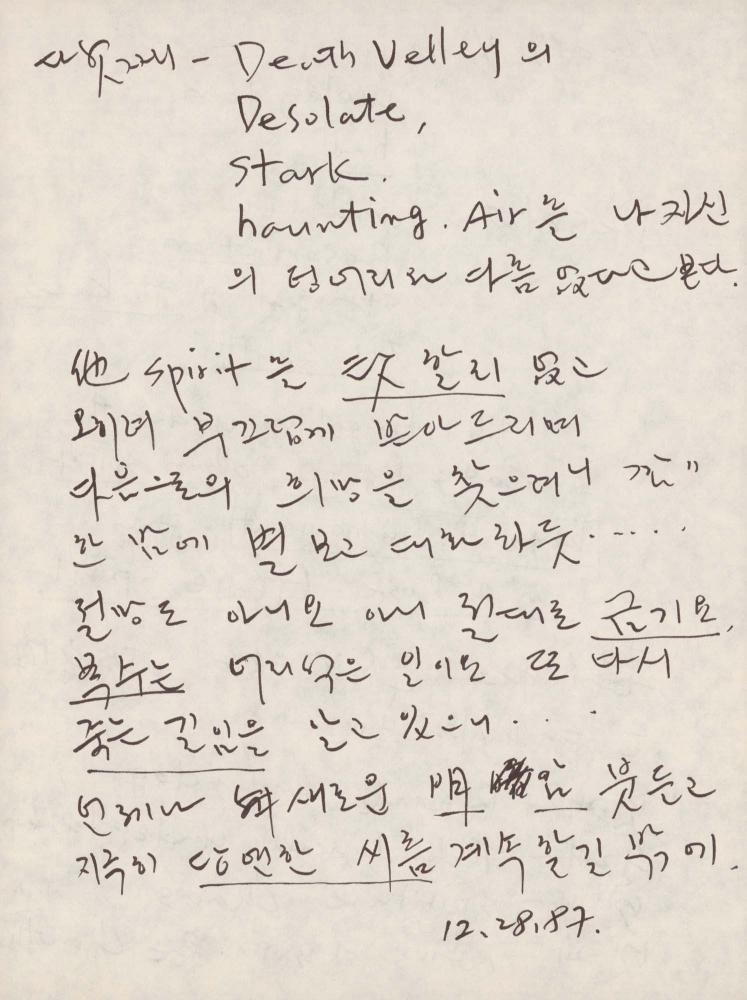 사붓재 - Death Velley의
Desolate,
Stark.
haunting. Air를 나 자신
의 덩어리와 다름 없다고 본다.
他 spirit를 敌 할리 없고
오히려 부끄럽게 받아드리며
다음으로의 희망을 찾으려니 깜"
한 밤에 별 보고 대화 하듯.....
절망도 아니요 아니 절대로 금기요,
복수는 어리석은 일이요 또 다시
죽는 길임을 알고 있으니...
언제나 새로운 明暗 붓 들고
지극히 당연한 씨름 계속 할길 밖에.
12.28.87.